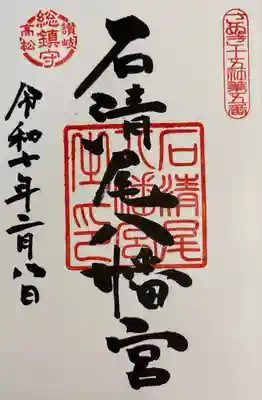 讃岐
総鎮守
高松
さぬき十五社第五番
石清尾八幡宮
石清尾
八幡宮
令和七年二月八日